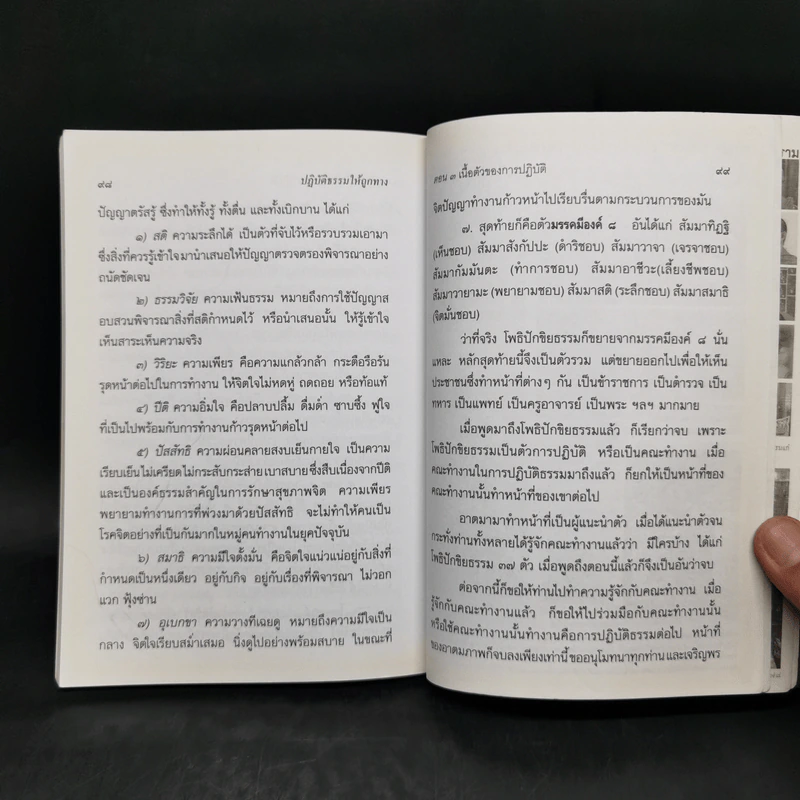 ๙๘ ปฏิบัติธรรมให้ถูกทาง
ปัญญาตรัสรู้ ซึ่งทำให้ทั้งรู้ ทั้งตื่น และทั้งเบิกบาน ได้แก่
๑) สติ ความระลึกได้ เป็นตัวที่จับไว้หรือรวบรวมเอามา
ซึ่งสิ่งที่ควรรู้เข้าใจ มานำเสนอให้ปัญญาตรวจตรองพิจารณาอย่าง
ถนัดชัดเจน
๒) ธรรมวิจัย ความเฟ้นธรรม หมายถึงการใช้ปัญญาส
อบสวนพิจารณาสิ่งที่สติกำหนดไว้ หรือนำเสนอนั้น ให้รู้เข้าใจ
เห็นสาระเห็นความจริง
๓) วิริยะ ความเพียร คือความแกล้วกล้า กระตือรือร้น
รุดหน้าต่อไปในการทำงาน ให้จิตใจไม่หดหู่ ถดถอย หรือท้อแท้
๔) ปีติ ความอิ่มใจ คือปลาบปลื้ม ดื่มด่ำ ซาบซึ้ง ฟูใจ
ที่เป็นไปพร้อมกับการทำงานก้าวรุดหน้าต่อไป
๕) ปัสสัทธิ ความผ่อนคลายสงบเย็นกายใจ เป็นความ
เรียบเย็นไม่เครียดไม่กระสับกระส่าย เบาสบาย ซึ่งสืบเนื่องจากปีติ
และเป็นองค์ธรรมสำคัญในการรักษาสุขภาพจิต ความเพียร
พยายามทำงานการที่พ่วงมาด้วยปัสสัทธิ จะไม่ทำให้คนเป็น
โรคจิตอย่างที่เป็นกันมากในหมู่คนทำงานในยุคปัจจุบัน
๖) สมาธิ ความมีใจตั้งมั่น คือจิตใจแน่วแน่อยู่กับสิ่งที่
กำหนดเป็นหนึ่งเดียว อยู่กับกิจ อยู่กับเรื่องที่พิจารณา ไม่วอก
แวก ฟุ้งซ่าน
๗) อุเบกขา ความวางทีเฉยดู หมายถึงความมีใจเป็น
กลาง จิตใจเรียบสม่ำเสมอ นิ่งดูไปอย่างพร้อมสบาย ในขณะที่
ตอน ๓ เนื้อตัวของการปฏิบัติ ๙๙
จิตปัญญาทำงานก้าวหน้าไปเรียบรื่นตามกระบวนการของมัน
๗. สุดท้ายก็คือตัวมรรคมีองค์ ๘ อันได้แก่ สัมมาทิฏฐิ
(เห็นชอบ) สัมมาสังกัปปะ (ดำริชอบ) สัมมาวาจา (เจรจาชอบ)
สัมมากัมมันตะ (ทำการชอบ) สัมมาอาชีวะ(เลี้ยงชีพชอบ)
สัมมาวายามะ (พยายามชอบ) สัมมาสติ (ระลึกชอบ) สัมมาสมาธิ
(จิตมั่นชอบ)
ว่าที่จริง โพธิปักขิยธรรมก็ขยายจากมรรคมีองค์ ๘ นั่น
แหละ หลักสุดท้ายนี้จึงเป็นตัวรวม แต่ขยายออกไปเพื่อให้เห็น
ประชาชนซึ่งทำหน้าที่ต่างๆ กัน เป็นข้าราชการ เป็นตำรวจ เป็น
ทหาร เป็นแพทย์ เป็นครูอาจารย์ เป็นพระ ฯลฯ มากมาย
เมื่อพูดมาถึงโพธิปักขิยธรรมแล้ว ก็เรียกว่าจบ เพราะ
โพธิปักขิยธรรมเป็นตัวการปฏิบัติ หรือเป็นคณะทำงาน เมื่อ
คณะทำงานในการปฏิบัติธรรมมาถึงแล้ว ก็ยกให้เป็นหน้าที่ของ
คณะทำงานนั้นทำหน้าที่ของเขาต่อไป
อาตมามาทำหน้าที่เป็นผู้แนะนำตัว เมื่อได้แนะนำตัวจน
กระทั่งท่านทั้งหลายได้รู้จักคณะทำงานแล้วว่า มีใครบ้าง ได้แก่
โพธิปักขิยธรรม ๓๗ ตัว เมื่อพูดถึงตอนนี้แล้วก็จึงเป็นอันว่าจบ
ต่อจากนี้ก็ขอให้ท่านไปทำความรู้จักกับคณะทำงาน เมื่อ
รู้จักกับคณะทำงานแล้ว ก็ขอให้ไปร่วมมือกับคณะทำงานนั้น
หรือใช้คณะทำงานนั้นทำงานคือการปฏิบัติธรรมต่อไป หน้าที่
ของอาตมภาพก็จบลงเพียงเท่านี้ ขออนุโมทนาทุกท่าน และเจริญพร